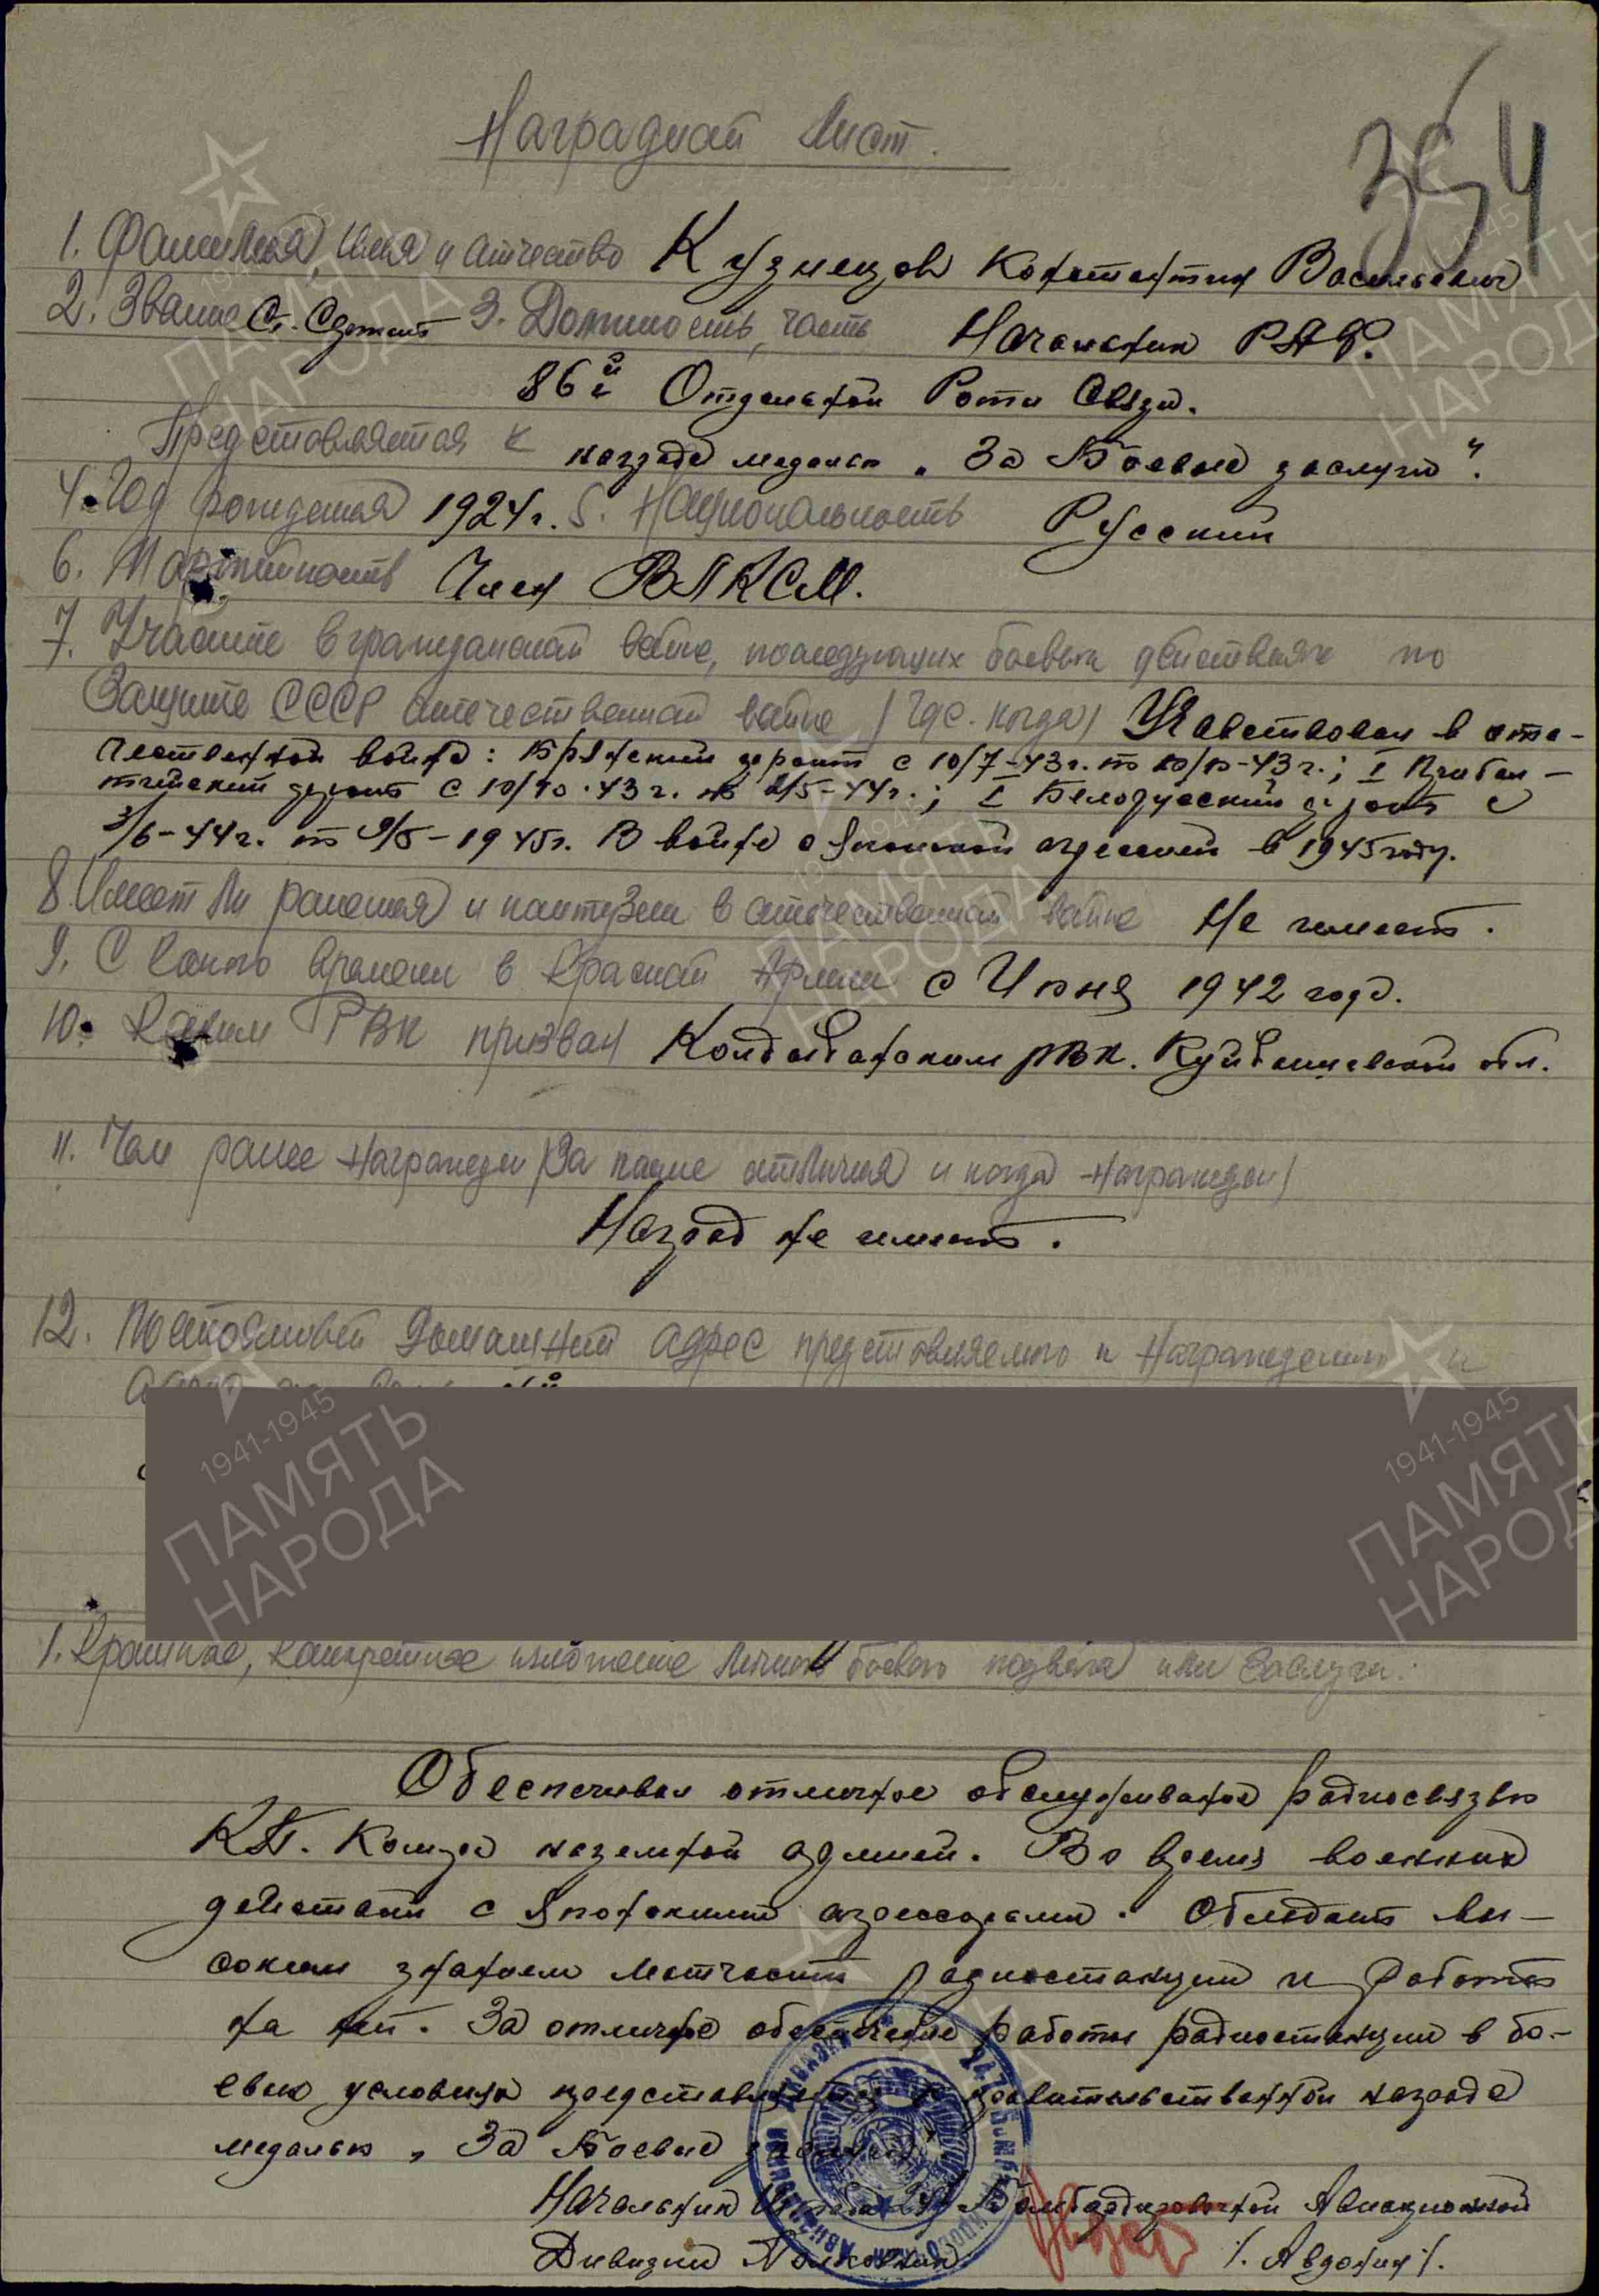 354
Наградной Лист.
1. Фамилия, Имя и отчество Кузнецов Константин Васильевич
2. Звание Ст. Сержант 3. Должность, часть Начальник РАФ.
86й Отдельной Роты Связи.
Представляется к награде медалью „За Боевые заслуги".
4. Год рождения 1924г. 5. Национальность Русский
6. Партийность Член ВЛКСМ.
7. Участие в гражданской войне, последующих боевых действиях по
Защите СССР отечественной войне /где. когда/ Участвовал в оте-
чественной войне: Брянский фронт с 10/7-43г. по 10/10-43г.; I Прибал-
тийский фронт с 10/10-43г. по 2/5-44г.; I Белорусский фронт с
3/6-44г. по 9/5-1945г. В войне с Японской агрессией в 1945 году.
8. Имеет ли ранения и контузии в отечественной войне Не имеет.
9. С какого времени в Красной Армии с Июня 1942 года.
10. Каким РВК призван РВК. Куйбышевской обл.
11. Чем ранее награжден /За какие отличия и когда награжден/
Наград не имеет.
12. Постоянный Домашний адрес представляемого к награждению и
1. Краткое, конкретное изложение личного боевого подвига или заслуги.
Обеспечивал отличное обслуживание радиосвязью
КП. Комдива наземной армией. Во время военных
действий с Японскими агрессорами. Обладает вы-
соким знанием матчасти радиостанции и работы
на ней. За отличное обеспечение работы радиостанции в бо-
евых условиях представляется к правительственной награде
медалью „За Боевые заслуги"
Начальник Штаба Бомбардировочной Авиационной
Дивизии Полковник /. Авдонин /.
ПАМЯТЬ НАРОДА
1941-1945